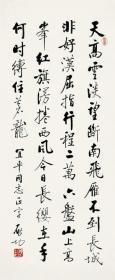 天高雲淡望斷南飛雁不到長城
非好漢屈指行程二萬六盤山上高
峯紅旗漫捲西風今日長纓在手
何時縛住蒼龍 同志正字 啟功